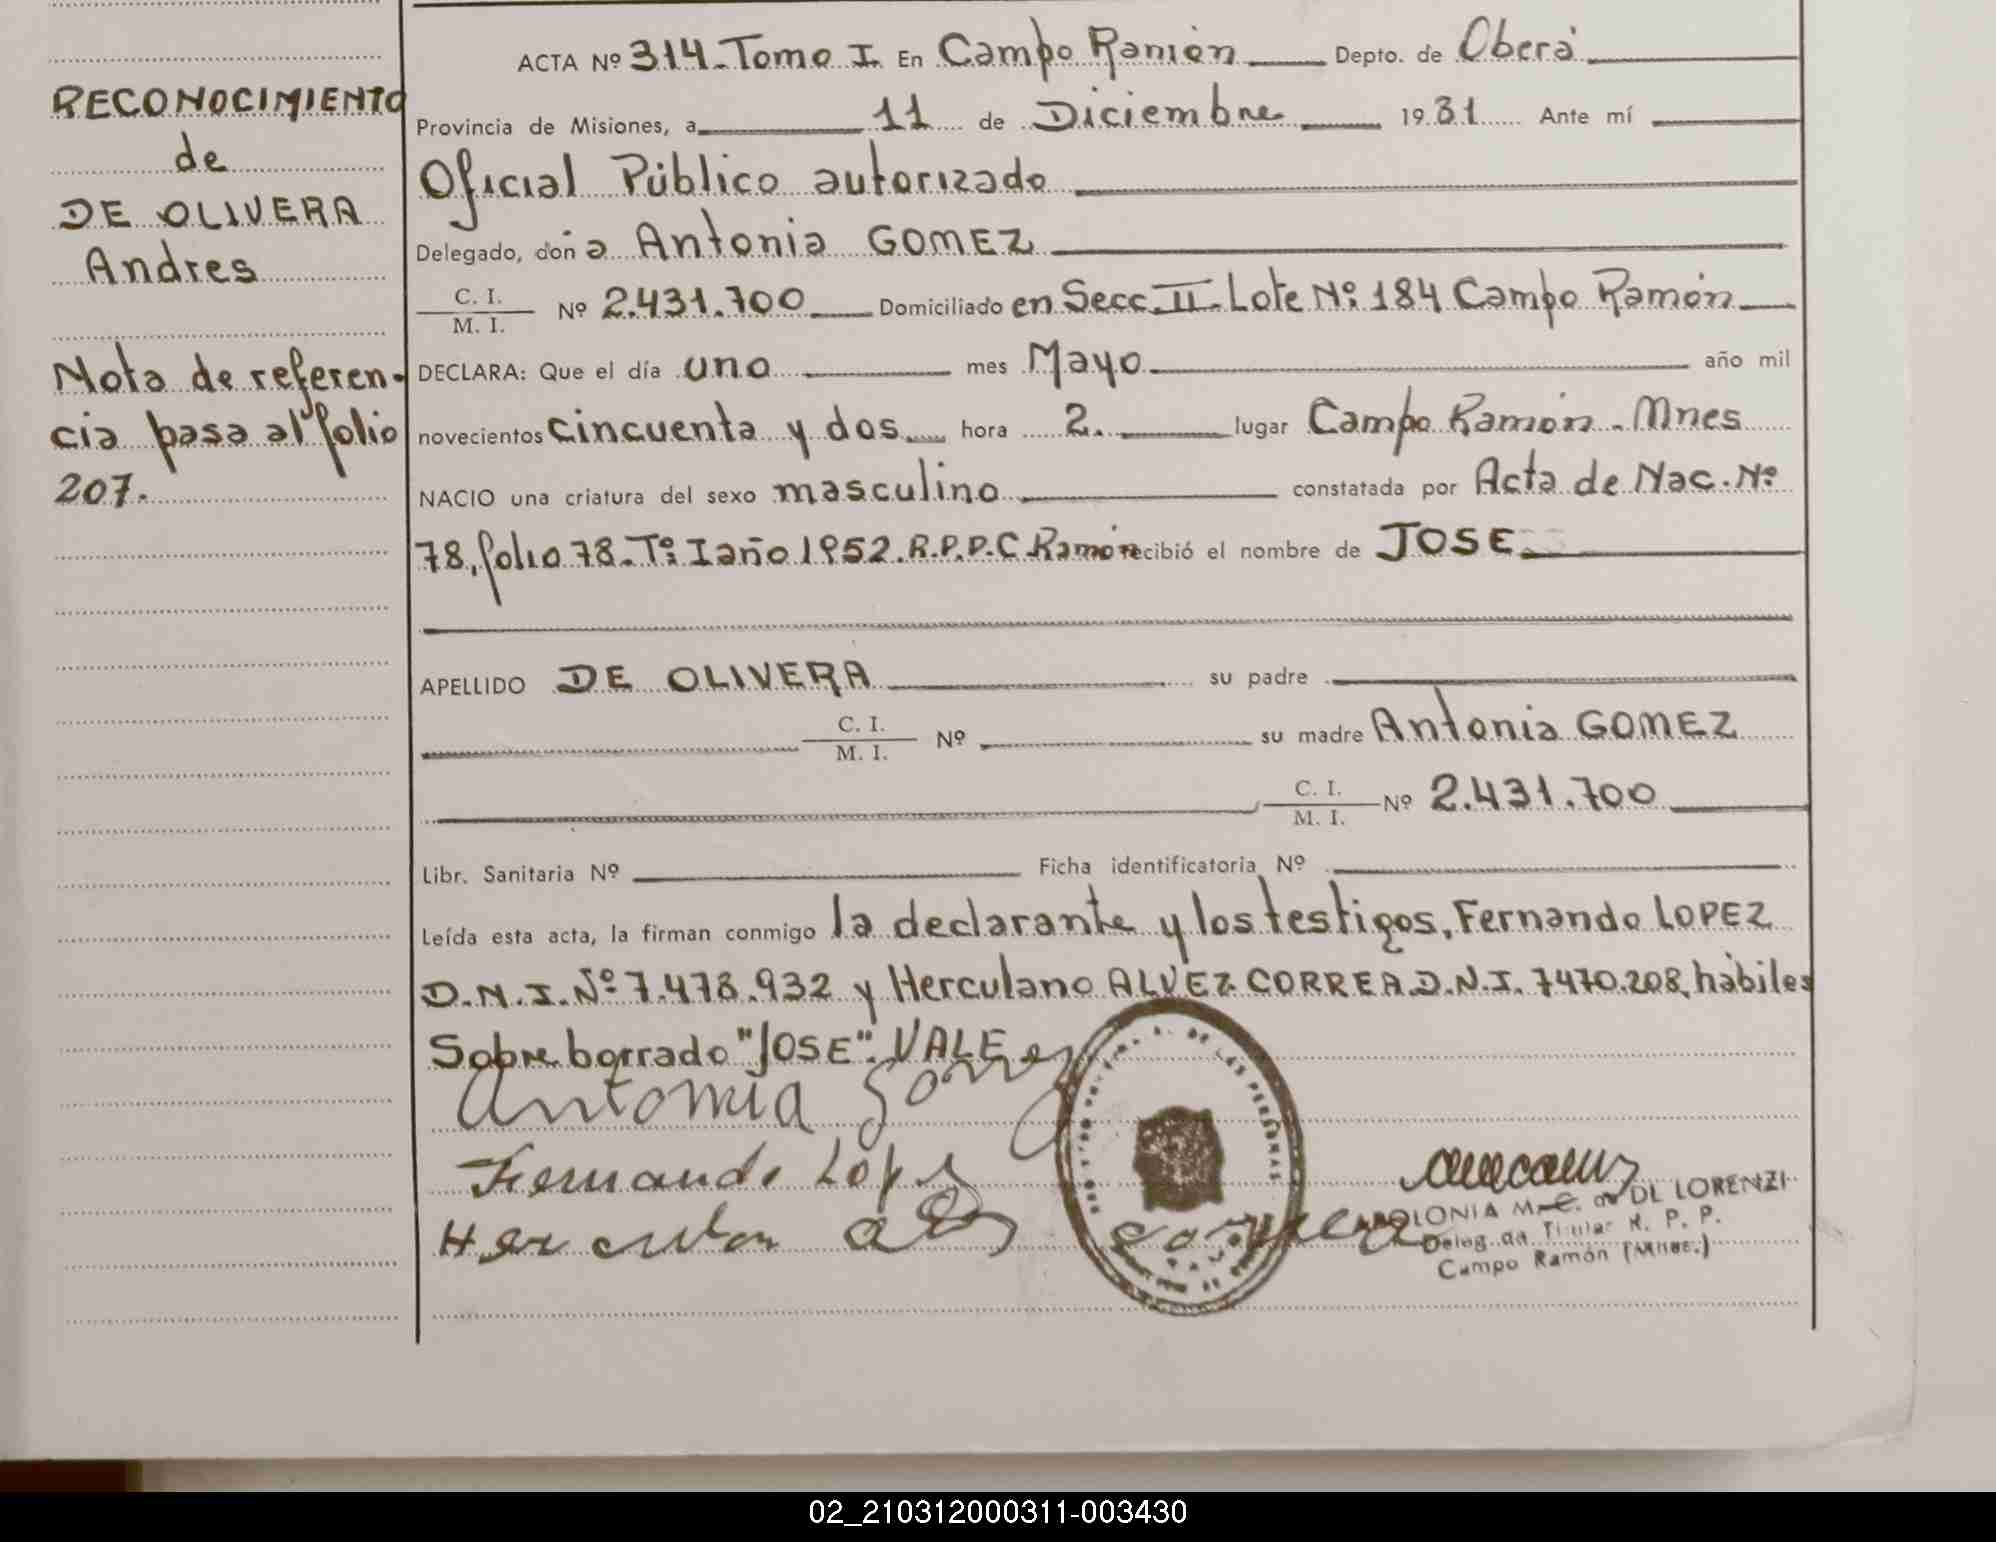 RECONOCIMIENTO
de
DE OLIVERA
Andres
Nota de referen-
cia pasa al folio
207.
ACTA Nº 314. Tomo I. En Campo Ramón Depto. de Oberá
Provincia de Misiones, a 11 de Diciembre 1981 Ante mí
Oficial Público autorizado
Delegado, doña Antonia GOMEZ
C. I.
M. I. Nº 2.431.700 Domiciliado en Secc. II. Lote Nº 184 Campo Ramón
DECLARA: Que el día uno mes Mayo año mil
novecientos cincuenta y dos. hora 2. lugar Campo Ramón. Mnes
NACIO una criatura del sexo masculino constatada por Acta de Nac. Nº
78, folio 78. Tº I año 1952. R.P.P.C. Ramón recibió el nombre de JOSE
APELLIDO DE OLIVERA su padre
C. I.
M. I. Nº su madre Antonia GOMEZ
C. I.
M. I. Nº 2.431.700
Libr. Sanitaria Nº Ficha identificatoria Nº
Leída esta acta, la firman conmigo la declarante y los testigos, Fernando LOPEZ
D.N.I. Nº 7.478.932 y Herculano ALVEZ CORREA D.N.I. 7470.208, hábiles
Sobre borrado "JOSE". VALE
Antonia Gomez
Fernando Lopez
DE LAS PERSONAS
DI LORENZI
Titular R. P. P.
Campo Ramón
02_210312000311-003430